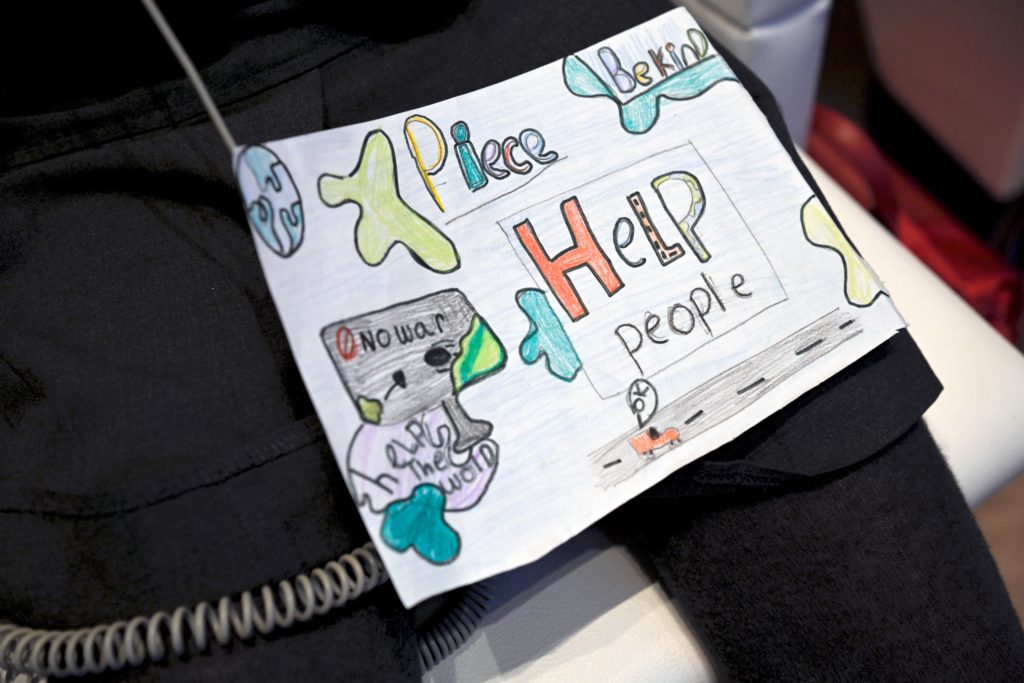 Be kind
Piece
HeLP
people
No war
OK
HELP
The
world